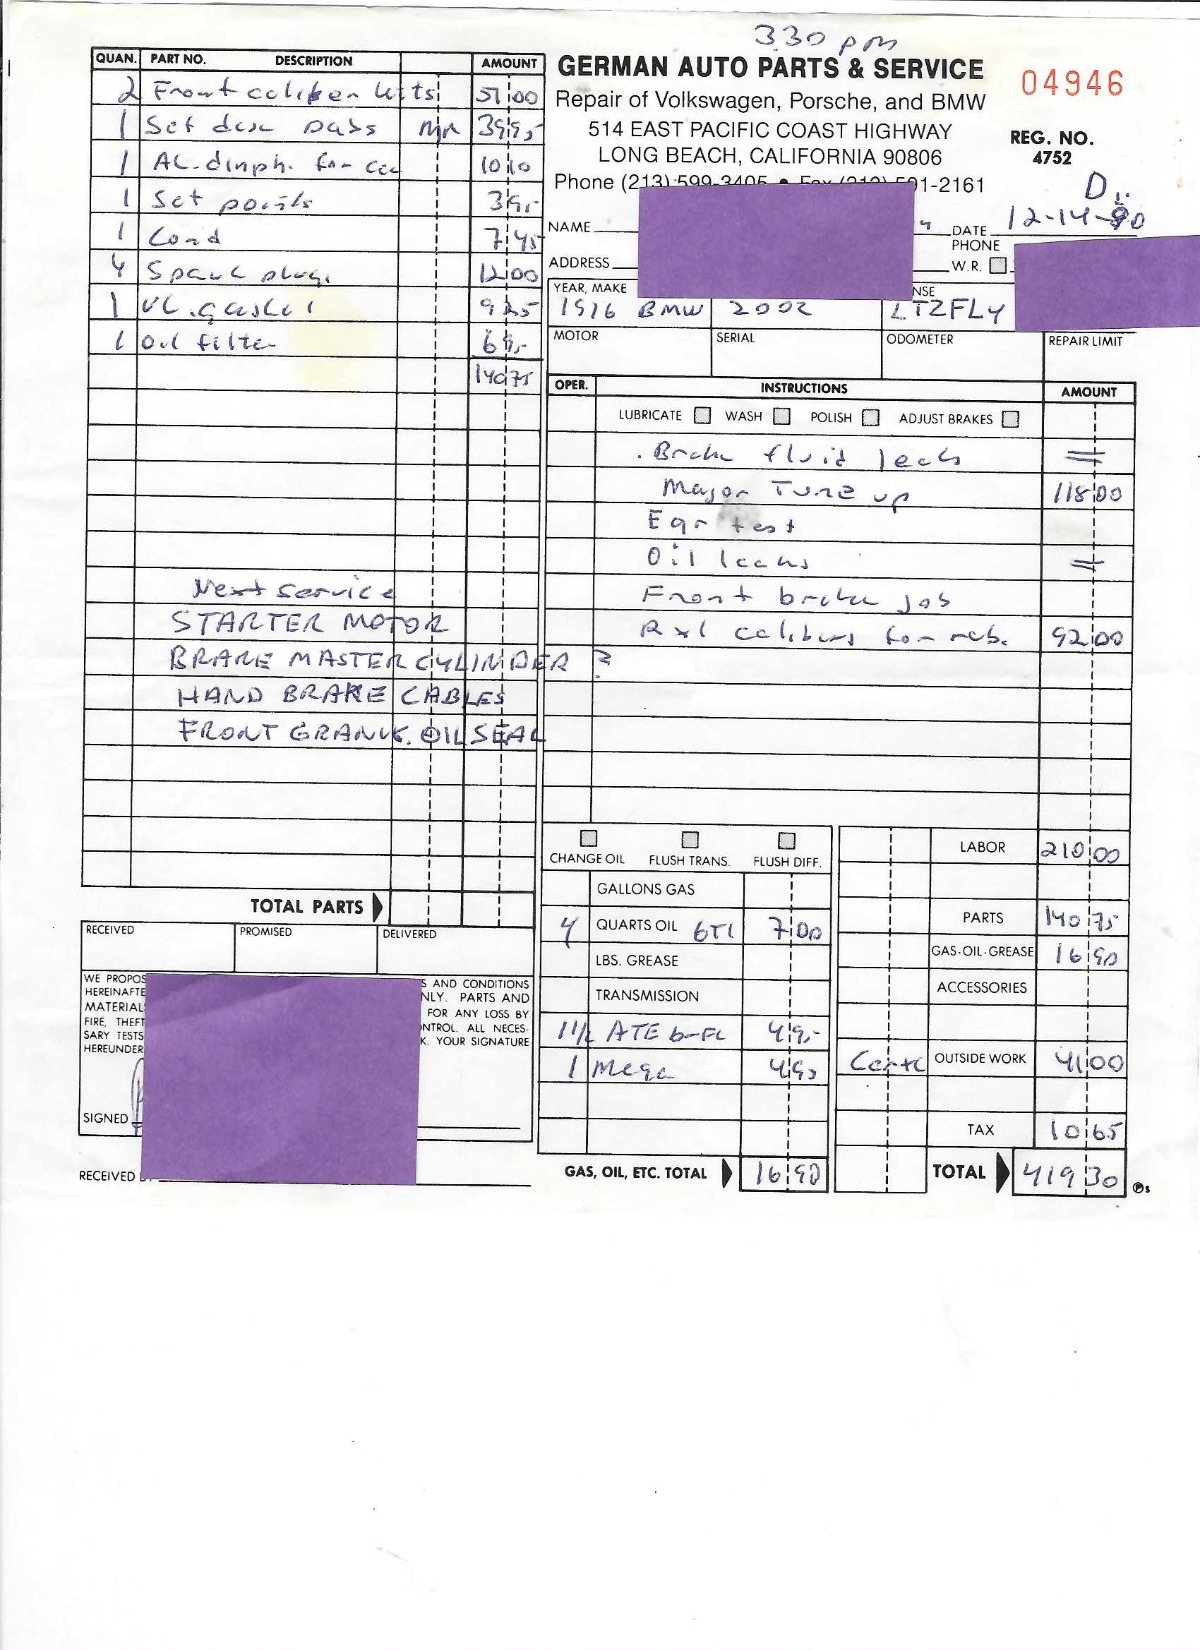 3.30 pm
QUAN. PART NO. DESCRIPTION AMOUNT
2 Front caliber kits 51 00
1 Set disc pads 39 95
1 AC-dmph. for 10 10
1 Set points 3 95
1 Cond 7 45
4 Spark plug. 12 00
1 VC.gasket 9 25
1 Oil filter
140 75
Next service
STARTER MOTOR
BRAKE MASTER CYLINDER ?
HAND BRAKE CABLES
FRONT GRANK. OIL SEAL
TOTAL PARTS
RECEIVED PROMISED DELIVERED
WE PROPOS S AND CONDITIONS
HEREINAFTE NLY. PARTS AND
MATERIAL FOR ANY LOSS BY
FIRE, THEFT NTROL. ALL NECES-
SARY TESTS K. YOUR SIGNATURE
HEREUNDER
SIGNED
RECEIVED
GERMAN AUTO PARTS & SERVICE
04946
Repair of Volkswagen, Porsche, and BMW
514 EAST PACIFIC COAST HIGHWAY
LONG BEACH, CALIFORNIA 90806
REG. NO.
4752
Phone (213) 599-3405 • Fax (213) 591-2161
NAME
DATE 12-14-90
ADDRESS
PHONE
W.R.
YEAR, MAKE NSE
1976 BMW 2002 LTZFLY
MOTOR SERIAL ODOMETER REPAIR LIMIT
OPER. INSTRUCTIONS AMOUNT
LUBRICATE WASH POLISH ADJUST BRAKES
. Brake fluid leaks =
Major Tune up 118 00
Egr test
Oil leaks =
Front brake job
R x l calibers for reb. 92 00
CHANGE OIL FLUSH TRANS. FLUSH DIFF.
GALLONS GAS
4 QUARTS OIL GTL 7 00
LBS. GREASE
TRANSMISSION
1 1/2 ATE b-FL 4 95
1 Mega 4 95
GAS, OIL, ETC. TOTAL 16 90
LABOR 210 00
PARTS 140 75
GAS-OIL-GREASE 16 90
ACCESSORIES
OUTSIDE WORK 41 00
TAX 10 65
TOTAL 419 30